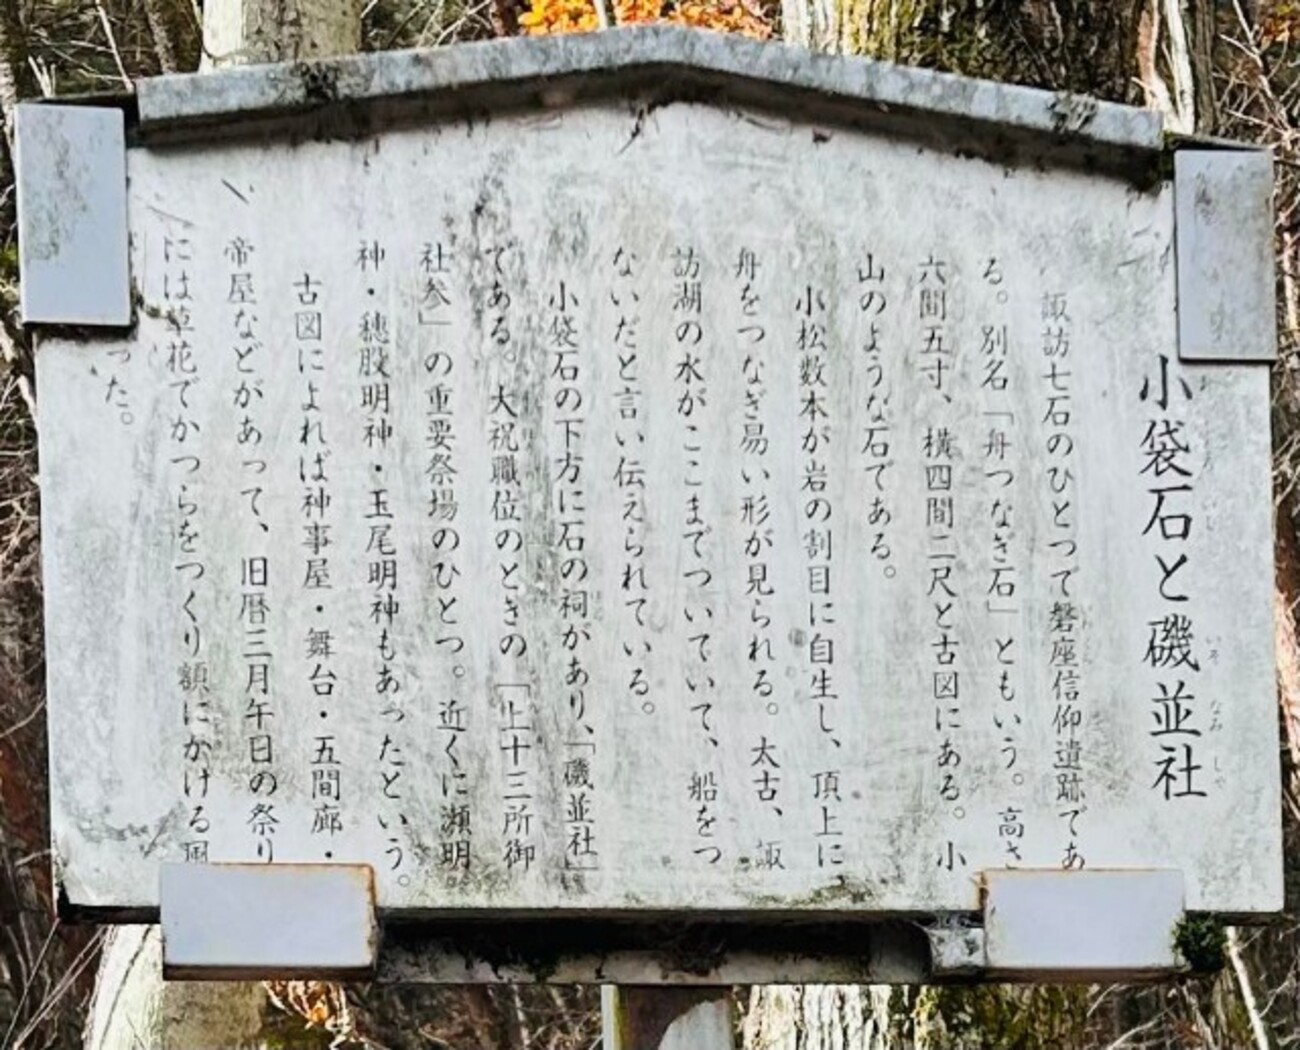 小袋石と磯並社
諏訪七石のひとつで磐座信仰遺跡であ
る。別名「舟つなぎ石」ともいう。高さ
六間五寸、横四間二尺と古図にある。小
山のような石である。
小松数本が岩の割目に自生し、頂上に
舟をつなぎ易い形が見られる。太古、諏
訪湖の水がここまでついていて、船をつ
ないだと言い伝えられている。
小袋石の下方に石の祠があり、「磯並社」
である。大祝職位のときの「上十三所御
社参」の重要祭場のひとつ。近くに瀬明
神・穂股明神・玉尾明神もあったという。
古図によれば神事屋・舞台・五間廊・
帝屋などがあって、旧暦三月午日の祭り
には草花でかつらをつくり額にかける風
った。